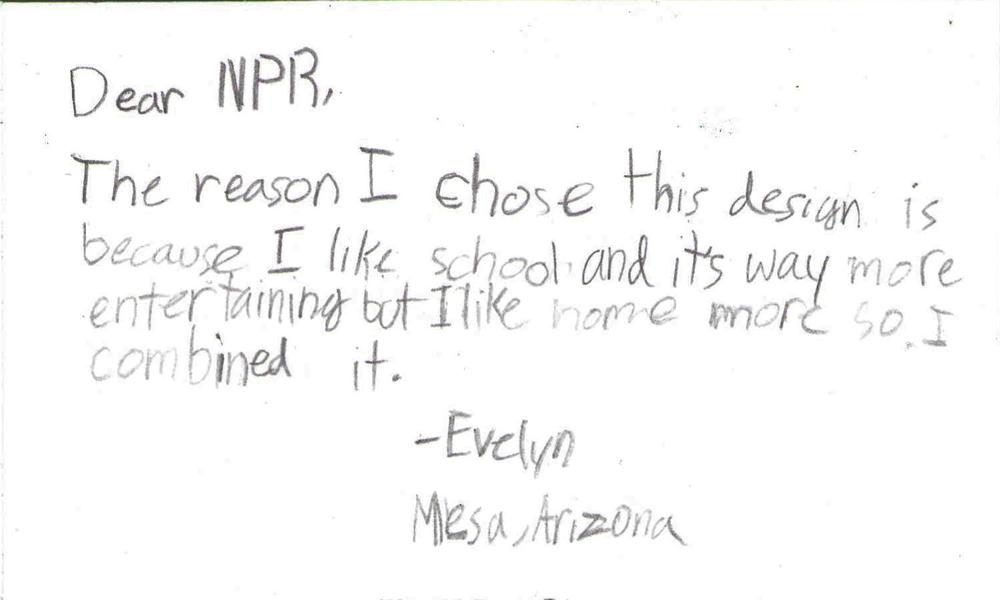 Dear NPR,
The reason I chose this design is
because I like school and it's way more
entertaining but I like home more so I
combined it.
-Evelyn
Mesa, Arizona